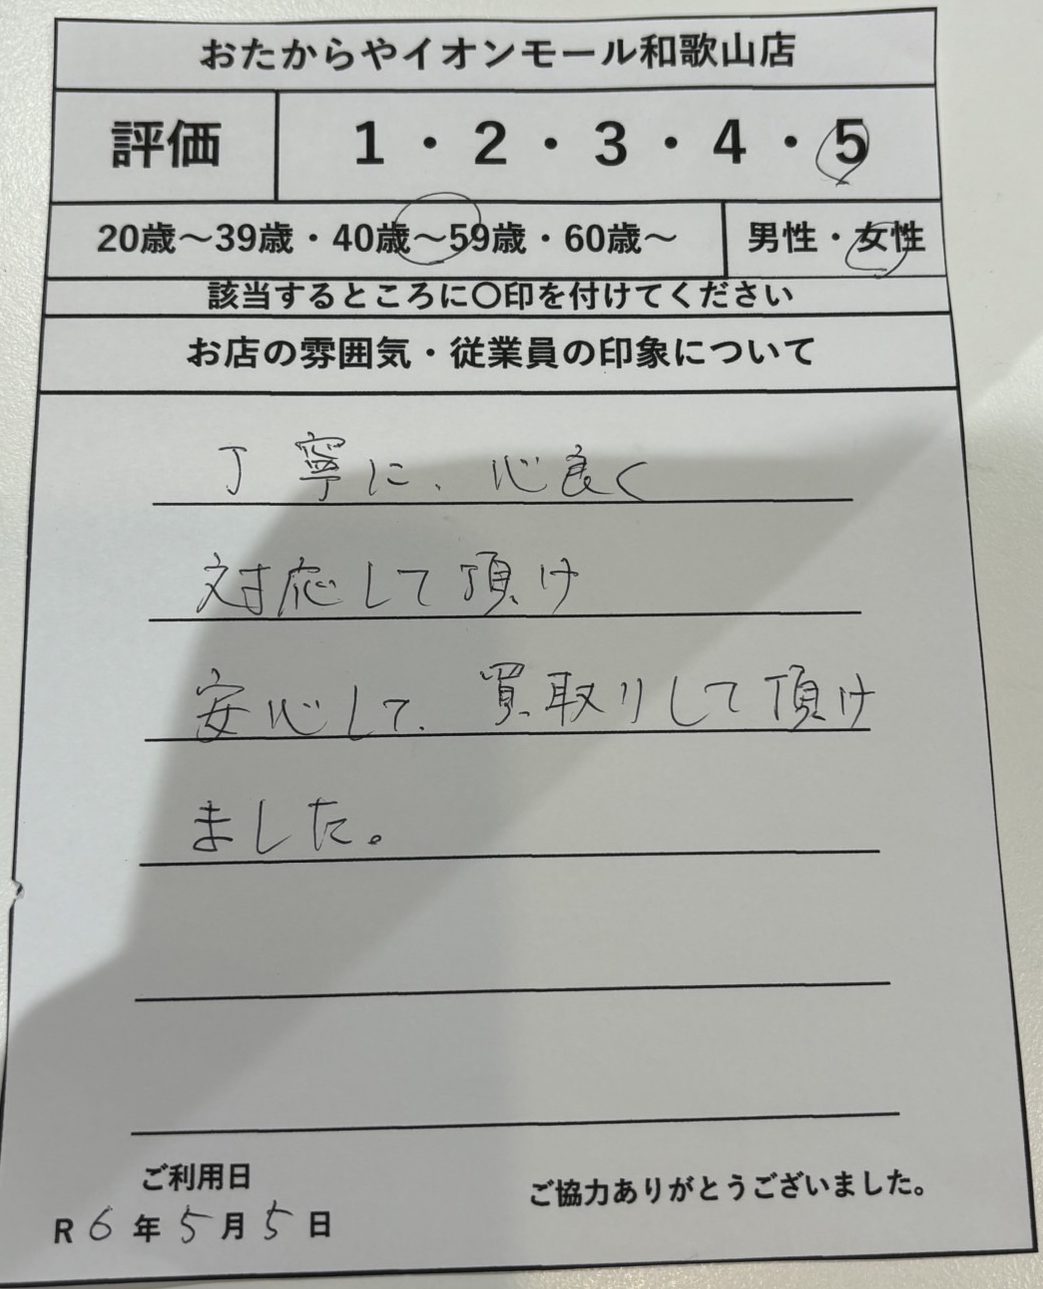 おたからやイオンモール和歌山店
評価 1・2・3・4・5
20歳〜39歳・40歳〜59歳・60歳〜 男性・女性
該当するところに〇印を付けてください
お店の雰囲気・従業員の印象について
丁寧に、心良く
対応して頂け
安心して、買取りして頂け
ました。
ご利用日
ご協力ありがとうございました。
R6年5月5日